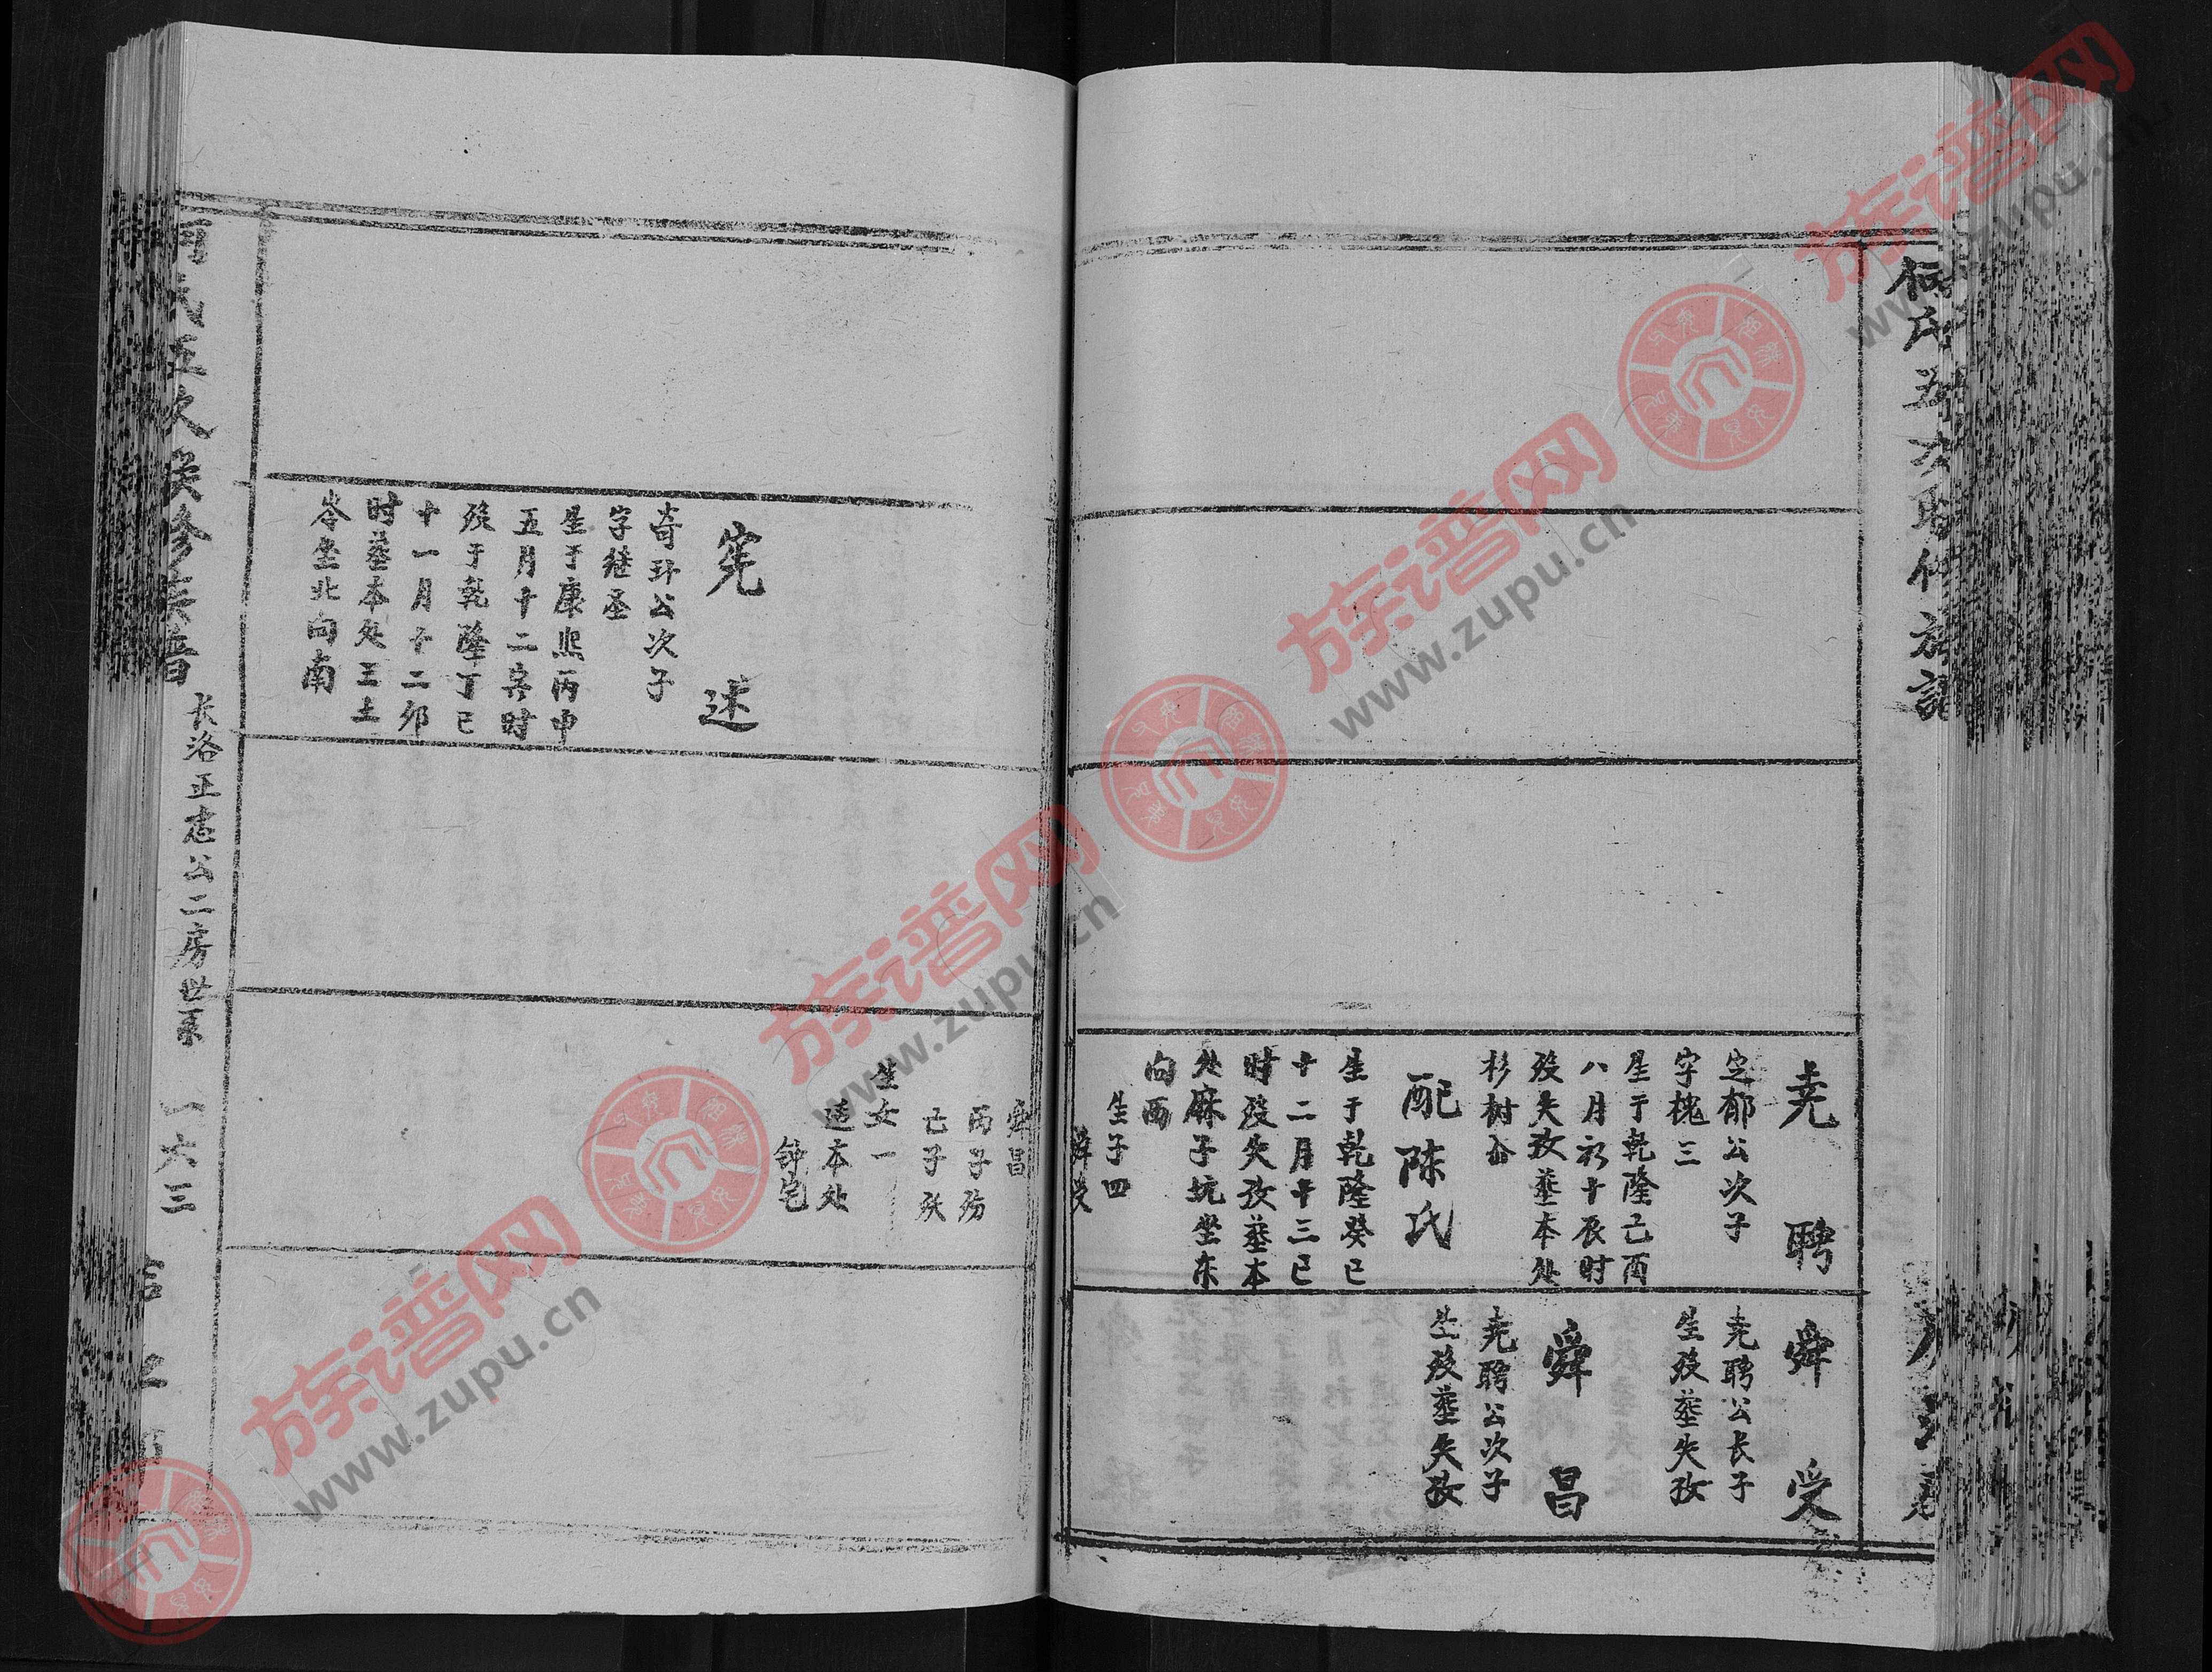 尧聘
定郁公次子
字槐三
生于乾隆己酉
八月初十辰时
殁失孜葬本处
杉树仚
配陈氏
生于乾隆癸巳
十二月十三巳
时殁失孜葬本
处麻子坑坐东
向西
生子四
舜受
舜受
尧聘公长子
生殁葬失孜
舜昌
尧聘公次子
生殁葬失孜
宪述
奇环公次子
字继圣
生于康熙丙申
五月十二亥时
殁于乾隆丁巳
十一月十二卯
时葬本处王土
岑坐北向南
舜昌
丙子殇
己子殀
生女一
适本处
钟宅
长洛正志公二房世系
一六三
族谱网
www.zupu.cn
族谱网
www.zupu.cn
族谱网
www.zupu.cn
族谱网
www.zupu.cn